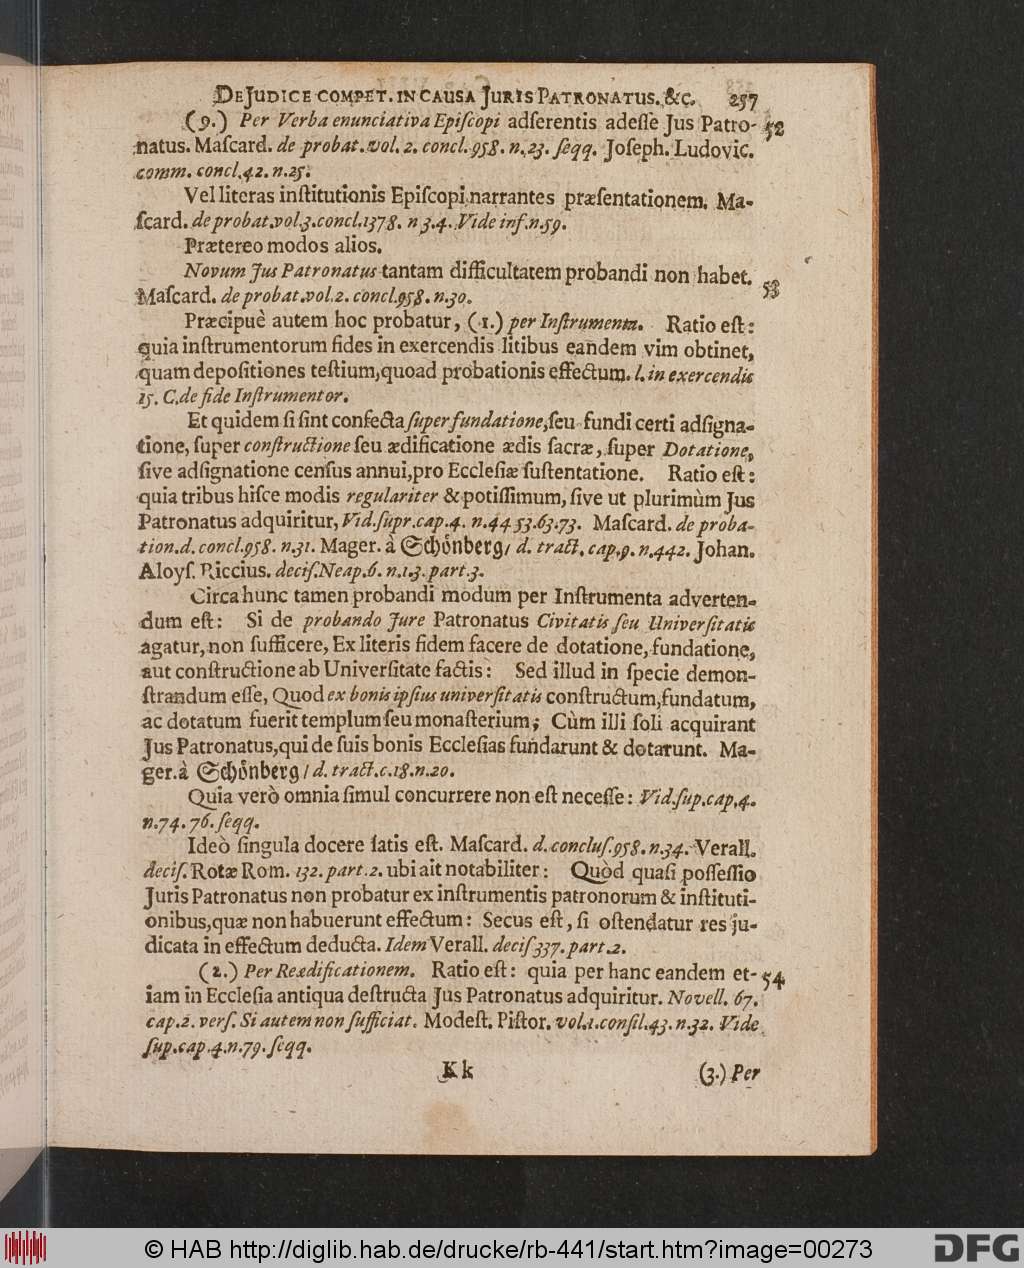 DE JUDICE COMPET. IN CAUSA JURIS PATRONATUS. &c. 257
(9.) Per Verba enunciativa Epiſcopi adſerentis adeſſe Jus Patro- 52
natus. Maſcard. de probat. vol. 2. concl. 958. n. 23. ſeqq. Joſeph. Ludovic.
comm. concl. 42. n. 25.
Vel literas inſtitutionis Epiſcopi narrantes præſentationem. Ma-
ſcard. de probat. vol. 3. concl. 1378. n 3. 4. Vide inf. n. 59.
Prætereo modos alios.
Novum Jus Patronatus tantam difficultatem probandi non habet. 53
Maſcard. de probat. vol. 2. concl. 958. n. 30.
Præcipuè autem hoc probatur, (1.) per Inſtrumenta. Ratio eſt:
quia inſtrumentorum fides in exercendis litibus eandem vim obtinet,
quam depoſitiones teſtium, quoad probationis effectum. l. in exercendis
15. C. de fide Inſtrumentor.
Et quidem ſi ſint confecta ſuper fundatione, ſeu fundi certi adſigna-
tione, ſuper conſtructione ſeu ædificatione ædis ſacræ, ſuper Dotatione,
ſive adſignatione cenſus annui, pro Eccleſiæ ſuſtentatione. Ratio eſt:
quia tribus hiſce modis regulariter & potiſſimum, ſive ut plurimùm Jus
Patronatus adquiritur, Vid. ſupr. cap. 4. n. 44 53. 63. 73. Maſcard. de proba-
tion. d. concl. 958. n. 31. Mager. à Schönberg/ d. tract. cap. 9. n. 442. Johan.
Aloyſ. Riccius. deciſ. Neap. 6. n. 1. 3. part. 3.
Circa hunc tamen probandi modum per Inſtrumenta adverten-
dum eſt: Si de probando Jure Patronatus Civitatis ſeu Univerſitatis
agatur, non ſufficere, Ex literis fidem facere de dotatione, fundatione,
aut conſtructione ab Univerſitate factis: Sed illud in ſpecie demon-
ſtrandum eſſe, Quod ex bonis ipſius univerſitatis conſtructum, fundatum,
ac dotatum fuerit templum ſeu monaſterium; Cùm illi ſoli acquirant
Jus Patronatus, qui de ſuis bonis Eccleſias fundarunt & dotarunt. Ma-
ger. à Schönberg/ d. tract. c. 18. n. 20.
Quia verò omnia ſimul concurrere non eſt neceſſe: Vid. ſup. cap. 4.
n. 74. 76. ſeqq.
Ideò ſingula docere ſatis eſt. Maſcard. d. concluſ. 958. n. 34. Verall.
deciſ. Rotæ Rom. 132. part. 2. ubi ait notabiliter: Quòd quaſi poſſeſſio
Juris Patronatus non probatur ex inſtrumentis patronorum & inſtituti-
onibus, quæ non habuerunt effectum: Secus eſt, ſi oſtendatur res ju-
dicata in effectum deducta. Idem Verall. deciſ 337. part. 2.
(2.) Per Reædificationem. Ratio eſt: quia per hanc eandem et- 54
iam in Eccleſia antiqua deſtructa Jus Patronatus adquiritur. Novell. 67.
cap. 2. verſ. Si autem non ſufficiat. Modeſt. Piſtor. vol. 1. conſil. 43. n. 32. Vide
ſup. cap. 4. n. 79. ſeqq.
Kk (3.) Per
© HAB http://diglib.hab.de/drucke/rb-441/start.htm?image=00273 DFG